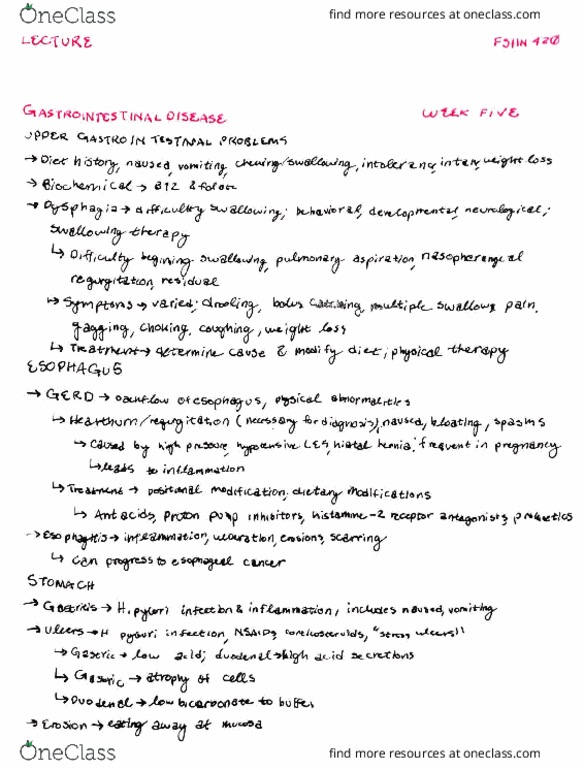 OneClass
find more resources at oneclass.com
LECTURE
FSHN 420
GASTROINTESTINAL DISEASE
WEEK FIVE
UPPER GASTROINTESTINAL PROBLEMS
→ Diet history, nausea, vomiting, chewing/swallowing, intolerance, intake, weight loss
→ Biochemical → B12 & folate
→ Dysphagia → difficulty swallowing; behavioral, developmental, neurological;
swallowing therapy
↳ Difficulty beginning swallowing, pulmonary aspiration, nasopharangeal
regurgitation, residual
↳ Symptoms → varied; drooling, bolus catching, multiple swallows, pain,
gagging, choking, coughing, weight loss
↳ Treatment → determine cause & modify diet; physical therapy
ESOPHAGUS
→ GERD → backflow of esophagus, physical abnormalities
↳ Heartburn/regurgitation (necessary for diagnosis), nausea, bloating, spasms
↳ Caused by high pressure, hypotensive LES, hiatal hernia; frequent in pregnancy
↳ leads to inflammation
↳ Treatment → positional modification; dietary modifications
↳ Antacids, proton pump inhibitors, histamine-2 receptor antagonists, prokinetics
→ Esophagitis → inflammation, ulceration, erosions, scarring
↳ Can progress to esophageal cancer
STOMACH
→ Gastritis → H. pylori infection & inflammation, includes nausea, vomiting
→ Ulcers → H pylori infection, NSAIDs, corticosteroids, "stress ulcers"
↳ Gastric → low acid; duodenal → high acid secretions
↳ Gastric → atrophy of cells
↳ Duodenal → low bicarbonate to buffer
→ Erosion → eating away at mucosa
OneClass
find more resources at oneclass.com